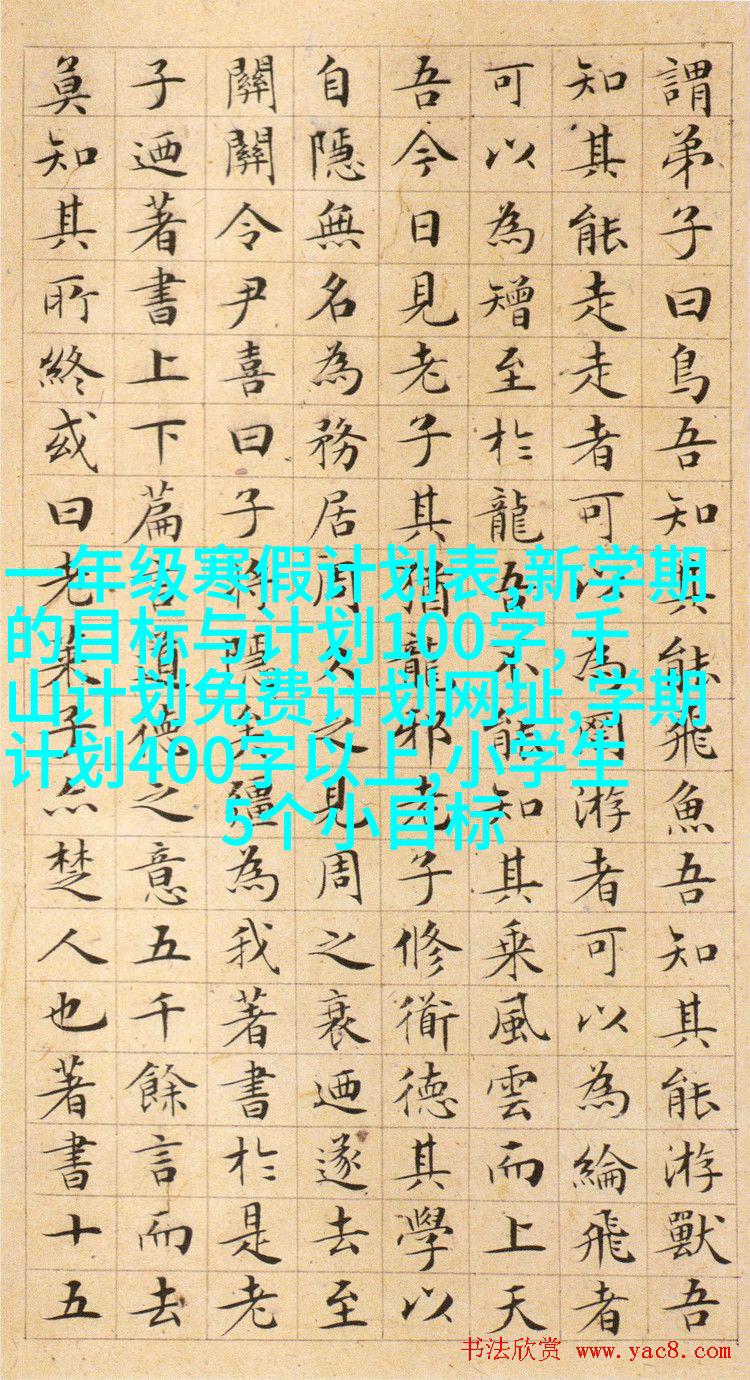 謂弟子曰鳥吾知其能飛魚吾知其能游獸吾
知其能走走者可以為罔游者可以為綸飛者
可以為矰至於龍吾不能知其乘風雲而上天
吾今日見老子其猶龍邪老子修道德其學以
自隱無名為務居周久之見周之衰迺遂去至
關關令尹喜曰子將隱矣彊為我著書於是老
子迺著書上下篇言道德之意五千餘言而去
莫知其所終或曰老萊子亦楚人也著書十五
一年级寒假计划表,新学期
的目标与计划100字,千
山计划免费计划网址,学期
计划400字以上,小学生
5个小目标
书法欣赏 www.yac8.com